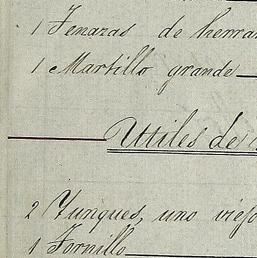 1 Tenazas de herra
1 Martillo grande
Utiles de
2 Yunques, uno viejo
1 Tornillo